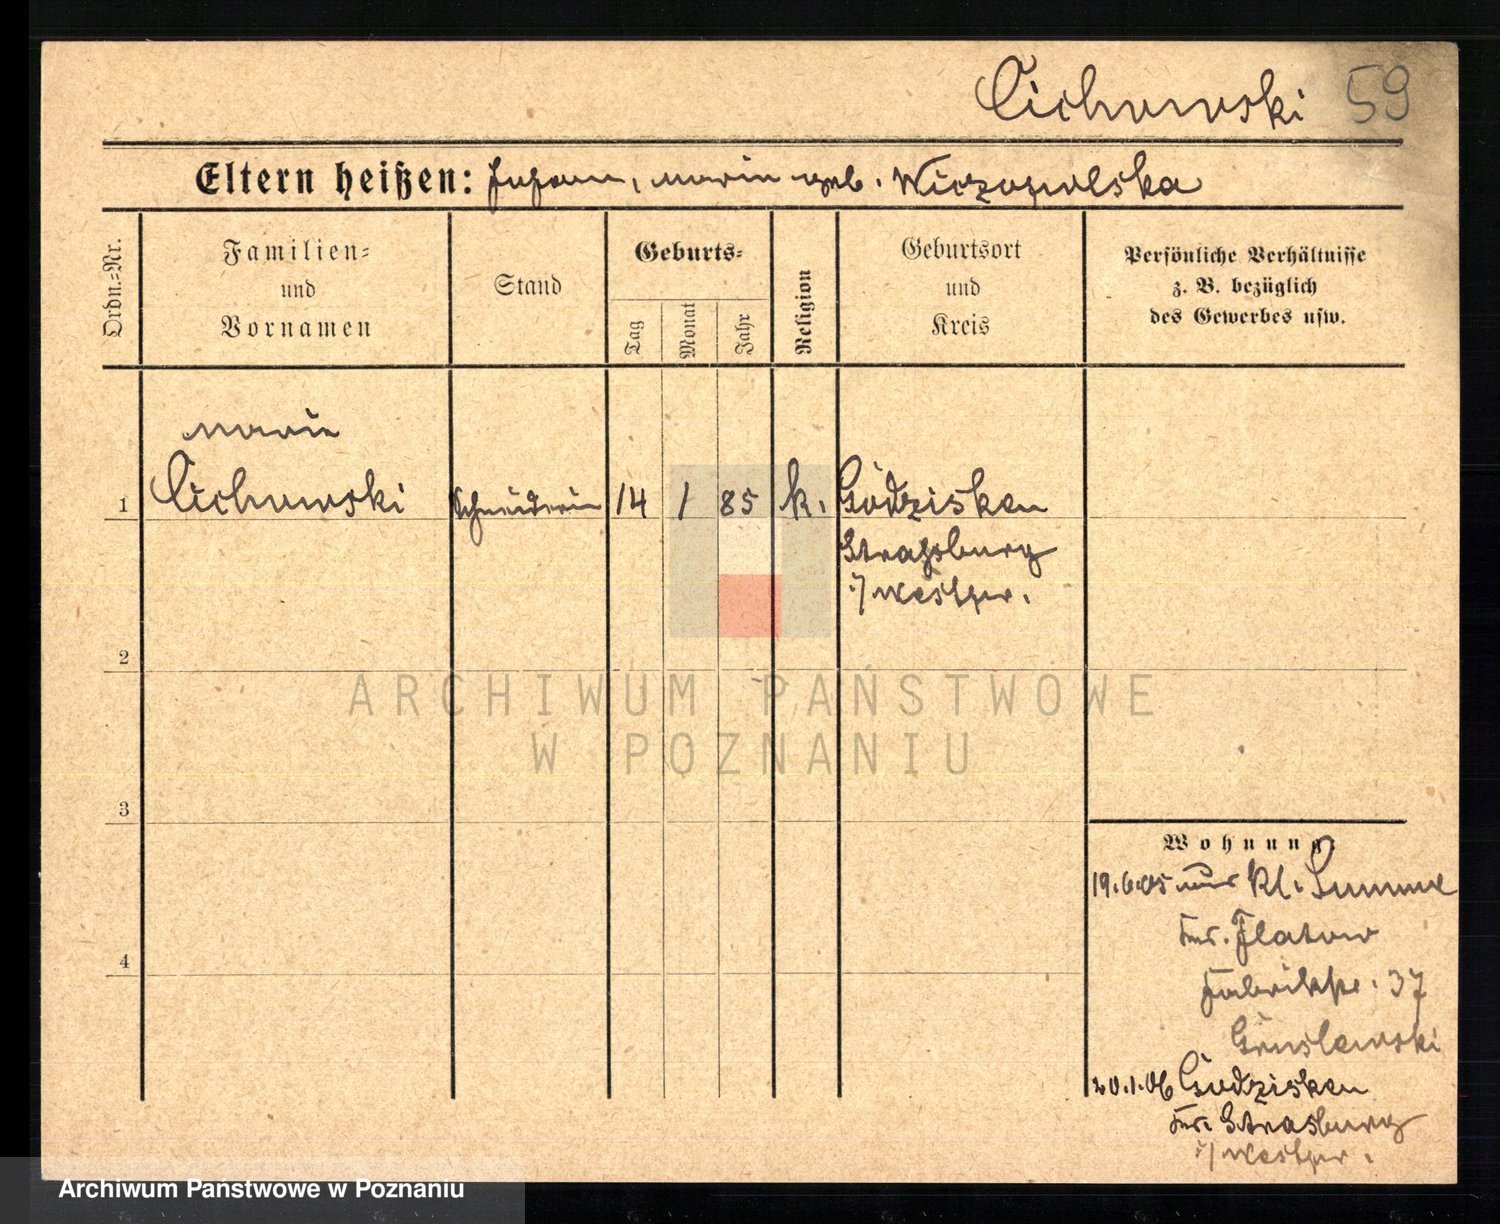 Cichowski 59
Eltern heißen: Johann, Marie geb. Wierzogolska
Ordn.=Nr.
Familien=
und
Vornamen
Stand
Geburts=
Tag
Monat
Jahr
Religion
Geburtsort
und
Kreis
Persönliche Verhältnisse
z. B. bezüglich
des Gewerbes usw.
Marie
1 Cichowski Schneiderin 14 1 85 k. Godzisken
Strassburg
i/ Westpr.
2
ARCHIWUM PAŃSTWOWE
W POZNANIU
3
Wohnung
19.6.05 aus Kl.
Krs. Flatow
Fabrikstr. 37
20.1.06 Godzisken
Krs. Strasburg
i/ Westpr.
4
Archiwum Państwowe w Poznaniu